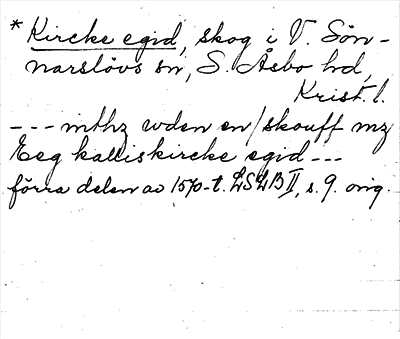 * Kircke egid, skog i V. Sön-
narslövs sn, S. Åsbo hd,
Krist. l.
--- mthz uden en / skouff mz
Eeg kalliskircke egid ---
förra delen av 1570-t. LSLB II, s. 9. orig.